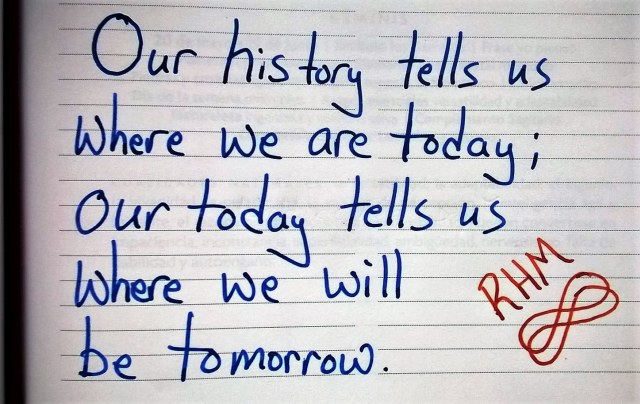 Our history tells us
where we are today;
Our today tells us
where we will
be tomorrow.
RHM